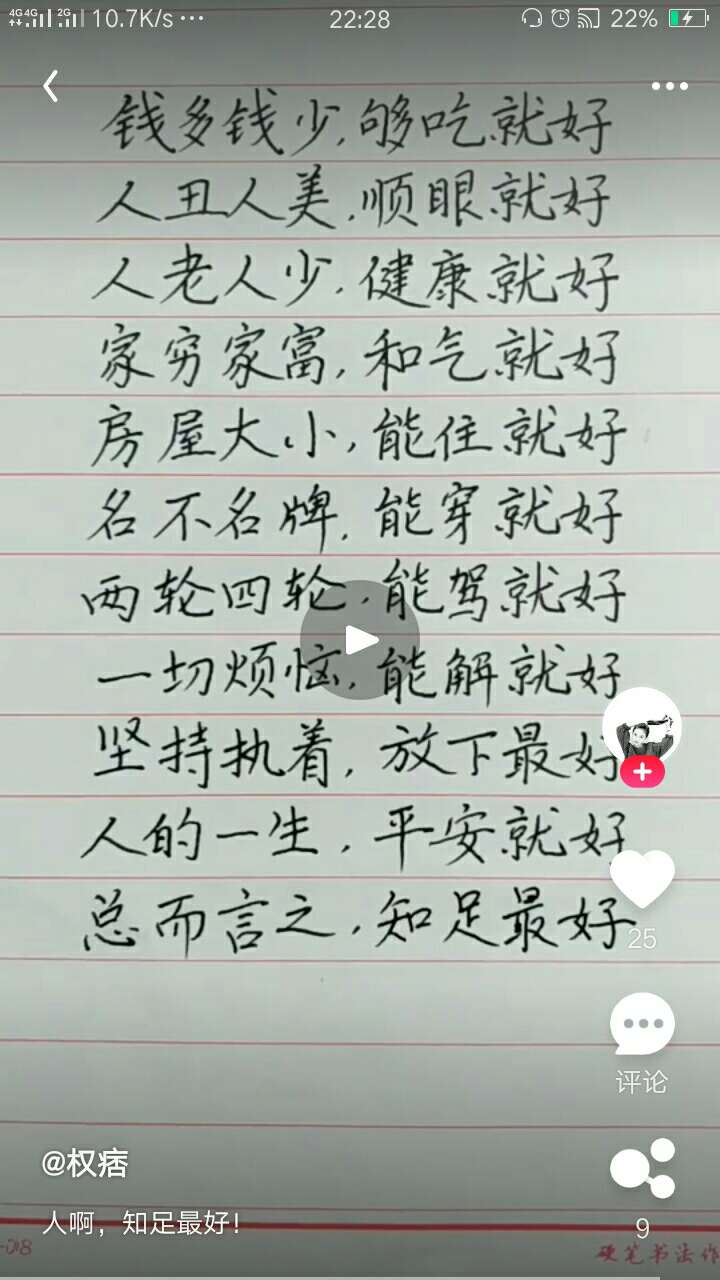 4G 4G 2G 10.7K/s ··· 22:28 22%
钱多钱少,够吃就好
人丑人美,顺眼就好
人老人少,健康就好
家穷家富,和气就好
房屋大小,能住就好
名不名牌,能穿就好
两轮四轮,能驾就好
一切烦恼,能解就好
坚持执着,放下最好
人的一生,平安就好
总而言之,知足最好
25
评论
@权痞
人啊，知足最好！
9
-08
硬笔书法作